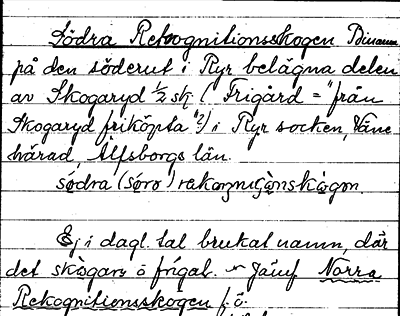 Södra Rekognitionsskogen Binamn
på den söderut i Ryr belägna delen
av Skogaryd ½ sk ( Frigård = "från
Skogaryd friköpta"?) i Ryr socken, Väne
härad, Älfsborgs län.
södra (söro) rakoŋniʃonskogon.
Ej i dagl. tal brukat namn, där
det skogarⱥ ö frigaḷ. Jämf Norra
Rekognitionsskogen f.ö.